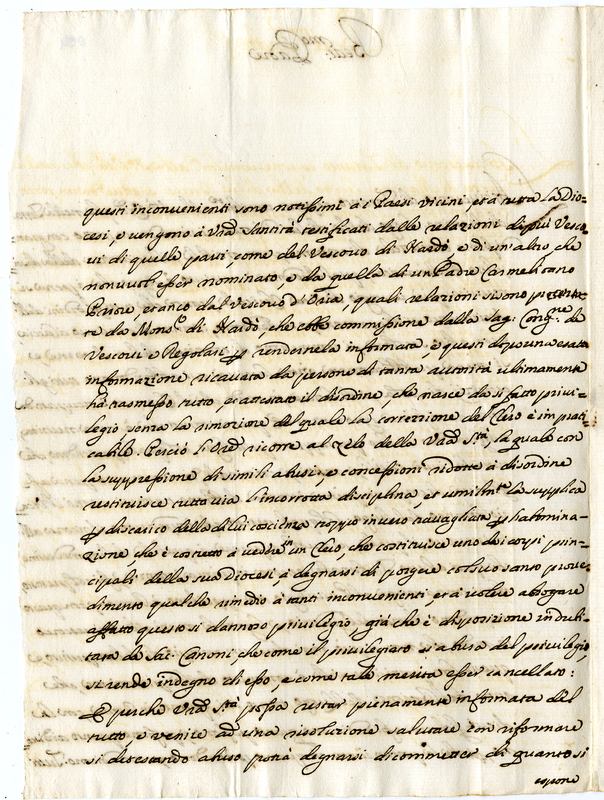 questi inconvenienti sono notissimi à i Paesi vicini, et à tutta la Dio=
cesi, e vengono à V.ra Santità testificati dalle relazioni di più Vesco=
vi di quelle parti, come del Vescovo di Nardò, e di un'altro, che
non vuol'esser nominato, e da quella di un Padre Carmelitano
Priore, et anco dal Vescovo d'Oria, quali relazioni si sono presenta=
te da Mons.r di Nardò, che ebbe commissione dalla Sag: Cong.ne de
Vescovi e Regolari per rendernela informata; e questi dopo una esata
informazione ricavata da persone di tanta autorità ultimamente
hà trasmesso tutto, et attestato il disordine, che nasce da sì fatto privi=
legio senza la rimozione del quale la correzzione del Clero è imprati=
cabile. Perciò l'Or.e ricorre al zelo della V.ra S.tà, la quale con
la suppressione di simili abusi, e concessioni ridotte à disordine
restituisce tutto via l'incorrotta disciplina, et umilm.te la supplica
per discarico della di lui coscienza troppo in vero travagliata per l'abomina=
zione, che è costretto à vedere in un Clero, che costituisce uno dei corpi prin=
cipali della sua Diocesi, à degnarsi di porgere col suo santo prove=
dimento qualche rimedio à tanti inconvenienti, et à volere abbrogare
affatto questo sì dannoso privilegio, già che è disposizione indubi=
tata de Sac: Canoni, che come il privilegiato si abusa del privilegio,
si rende indegno di esso, e come tale merita esser cancellato:
E perche V.ra S.tà possa restar pienamente informata del
tutto, e venire ad una risoluzione salutare con riformare
si detestando abuso potrà degnarsi di commetter di quanto si
espone